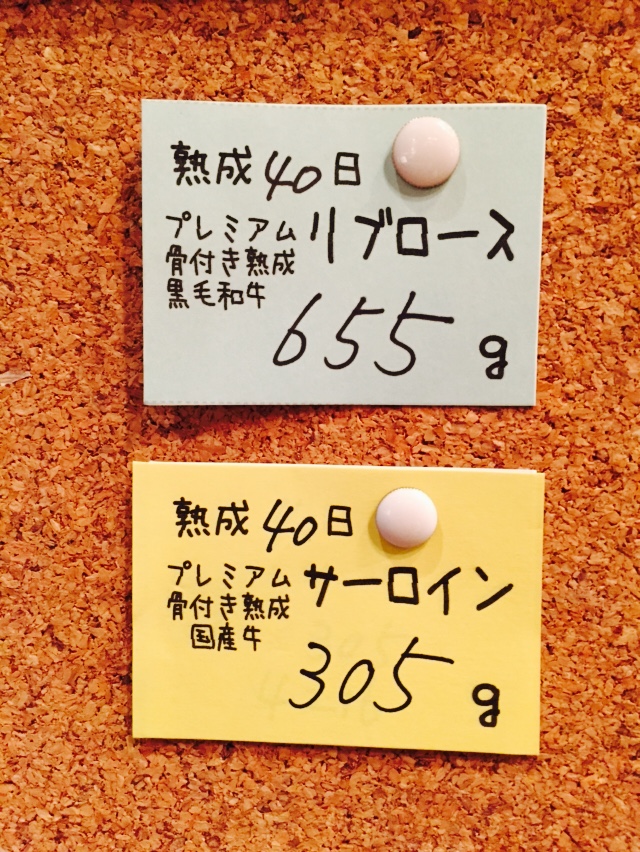 熟成40日
プレミアム リブロース
骨付き熟成
黒毛和牛
655g
熟成40日
プレミアム サーロイン
骨付き熟成
国産牛
305g